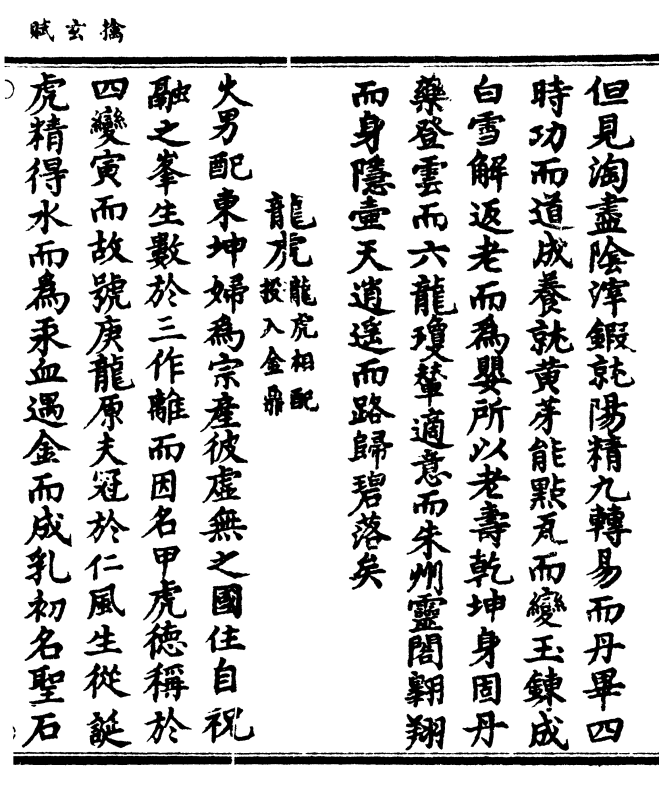 擒玄賦
但見淘盡陰滓鍜就陽精九轉易而丹畢四
時功而道成養就黃芽能點瓦而變玉鍊成
白雪解返老而為嬰所以老壽乾坤身固丹
藥登雲而六龍瓊輦適意而朱州靈閣翺翔
而身隱壺天逍遥而路歸碧落矣
龍虎龍虎相配投入金鼎
火男配東坤婦為宗產彼虛無之國住自祝
融之峯生數於三作離而因名甲虎德稱於
四變寅而故號庚龍原夫冠於仁風生從誕
虎精得水而為汞血遇金而成乳初名聖石